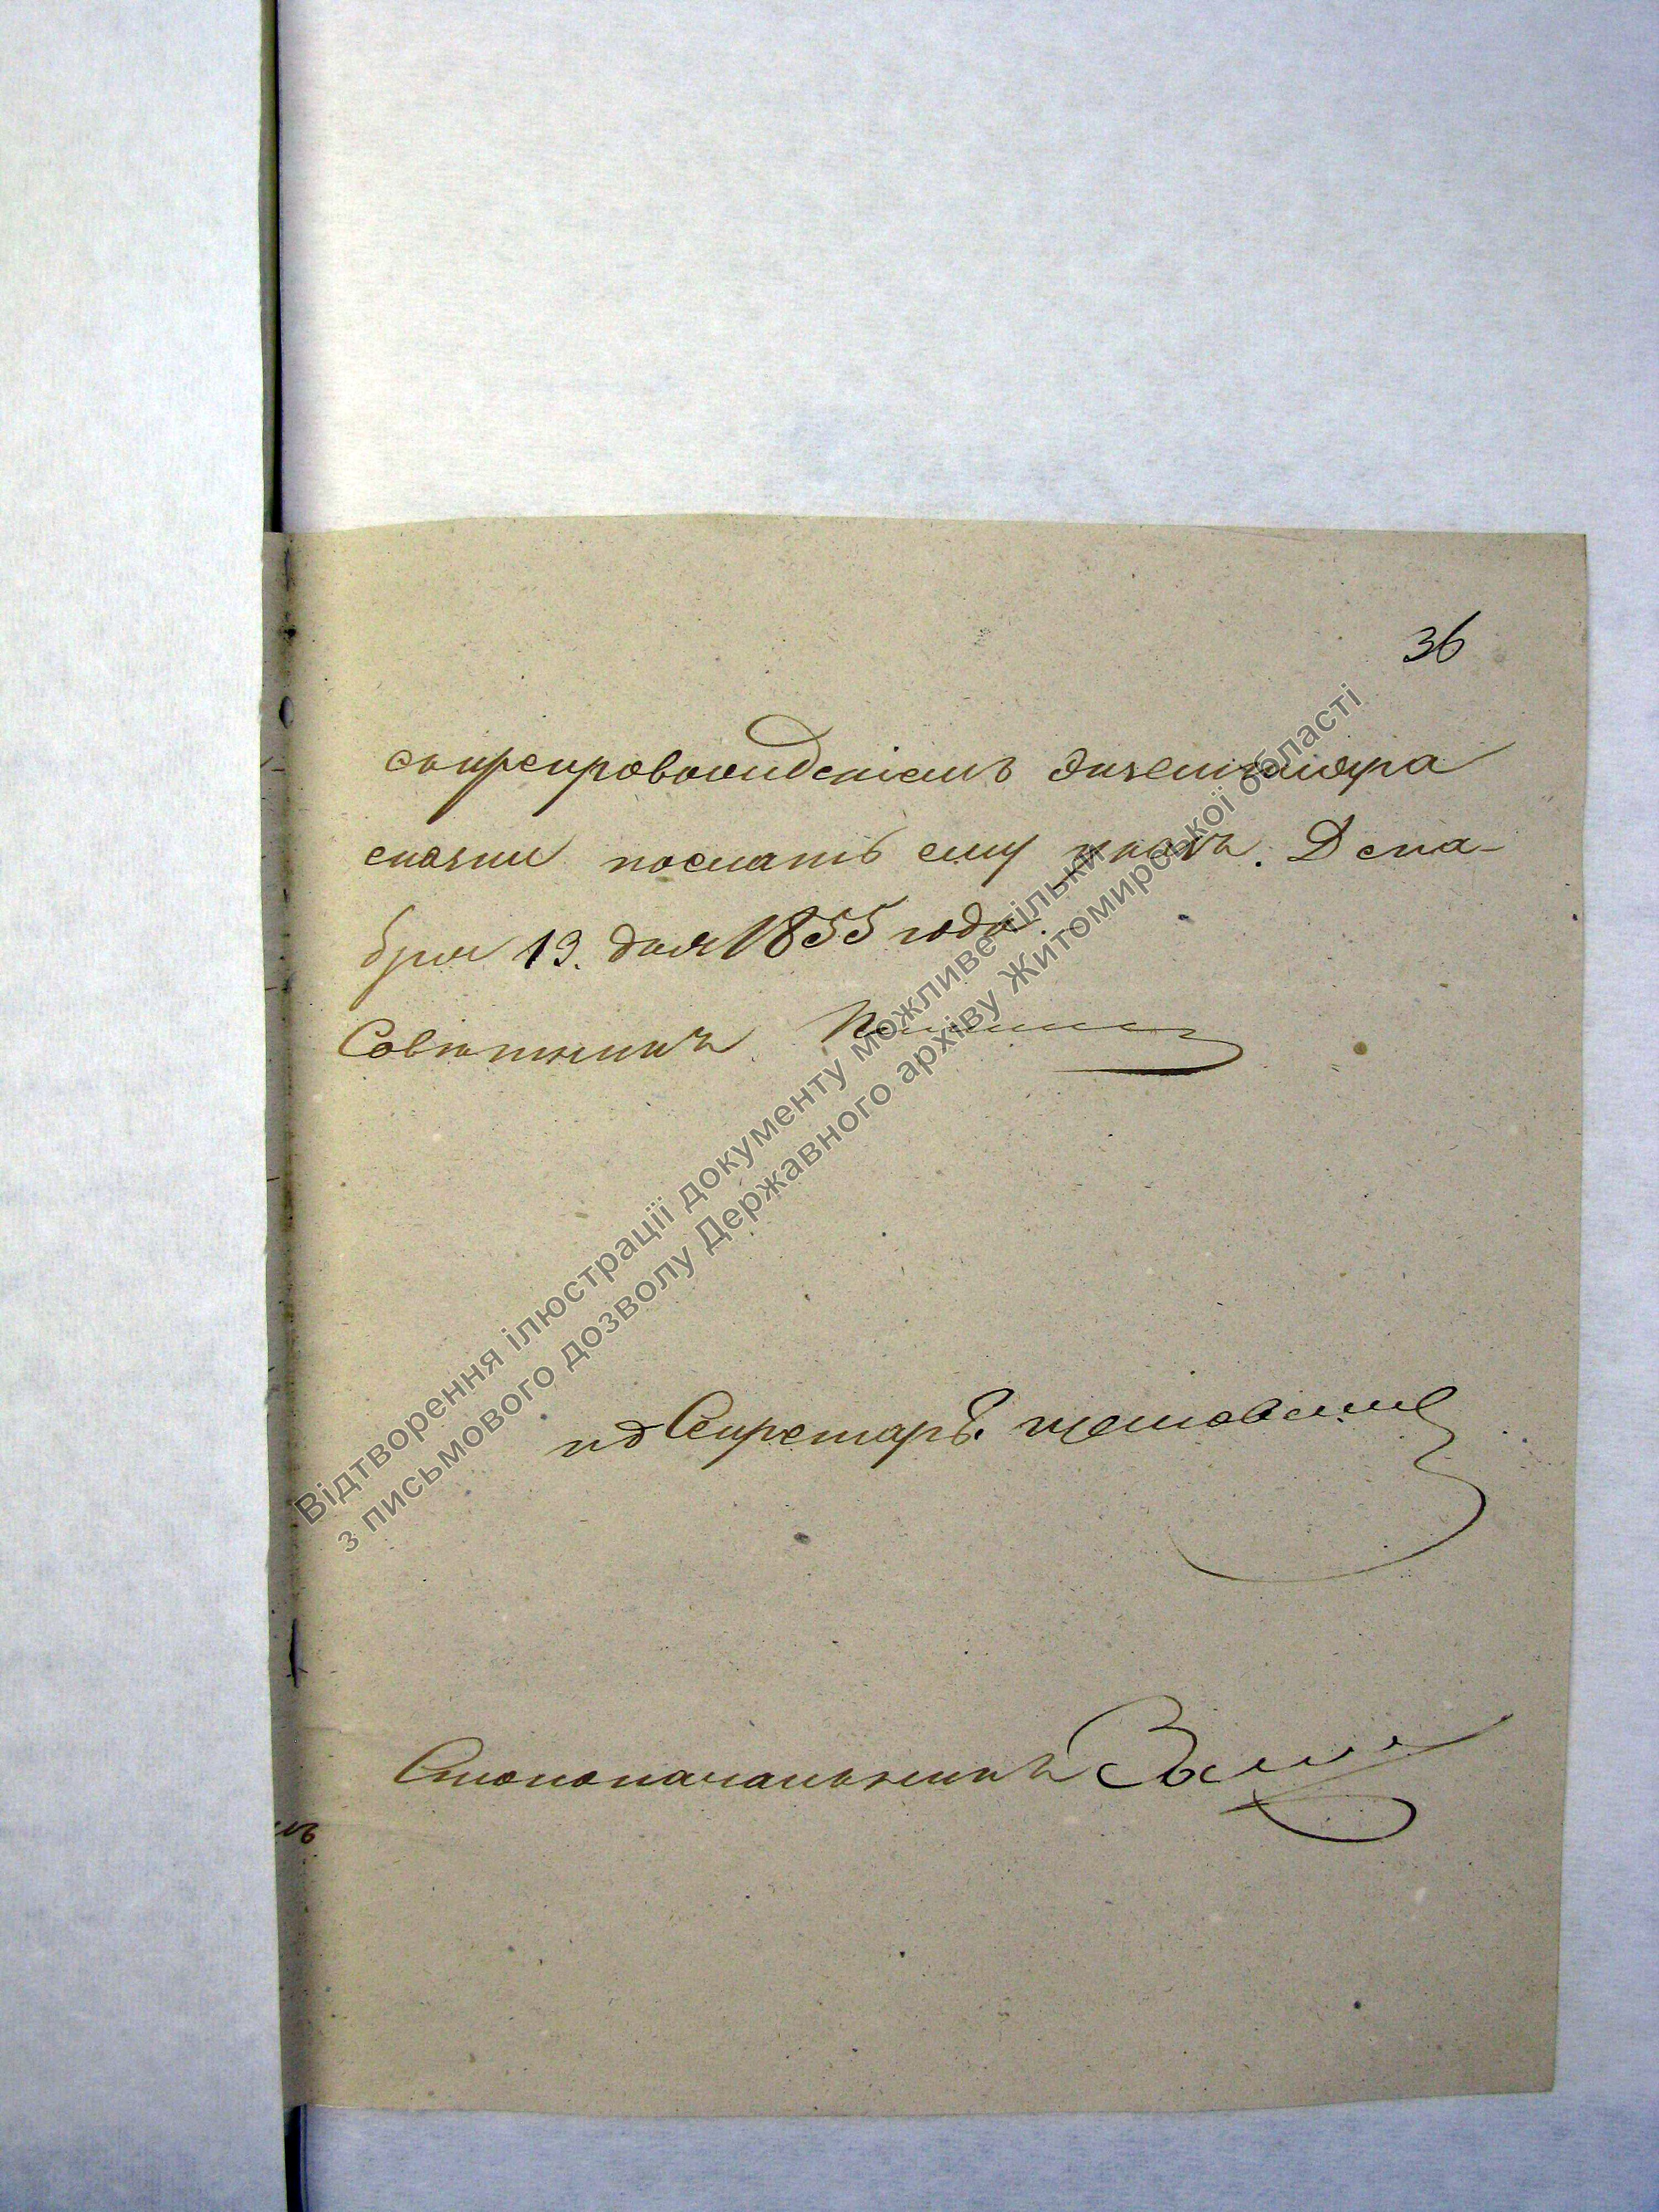 36
съ препровожденіемъ экземпляра
сказки послать ему указъ. Дека-
бря 19. дня 1855 года.
Совѣтникъ
ид Секретаря
Столоначальникъ
Відтворення ілюстрації документу можливе тільки
з письмового дозволу Державного архіву Житомирської області